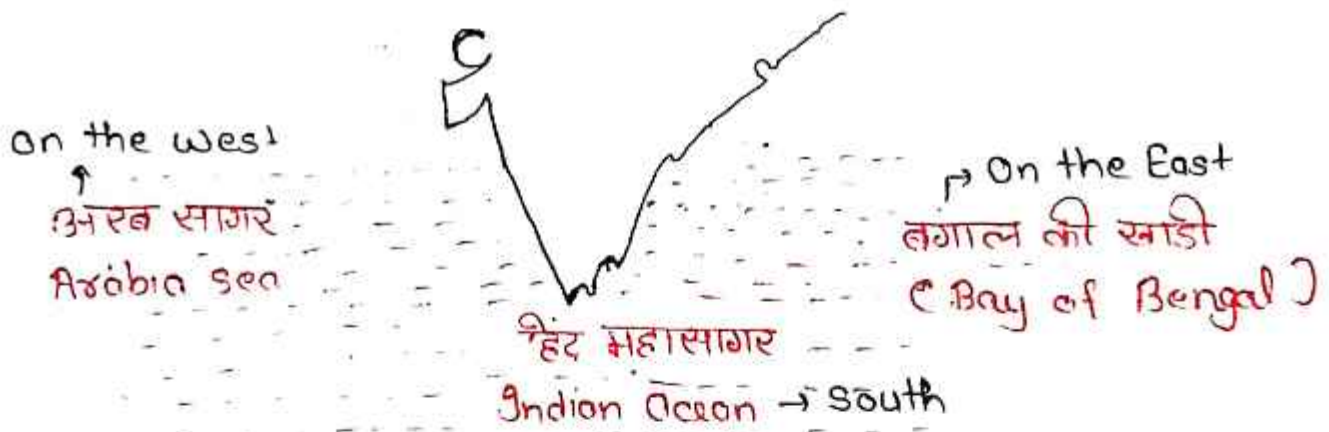 On the West
अरब सागर
Arabia Sea
On the East
बंगाल की खाडी
(Bay of Bengal)
हिंद महासागर
Indian Ocean → South